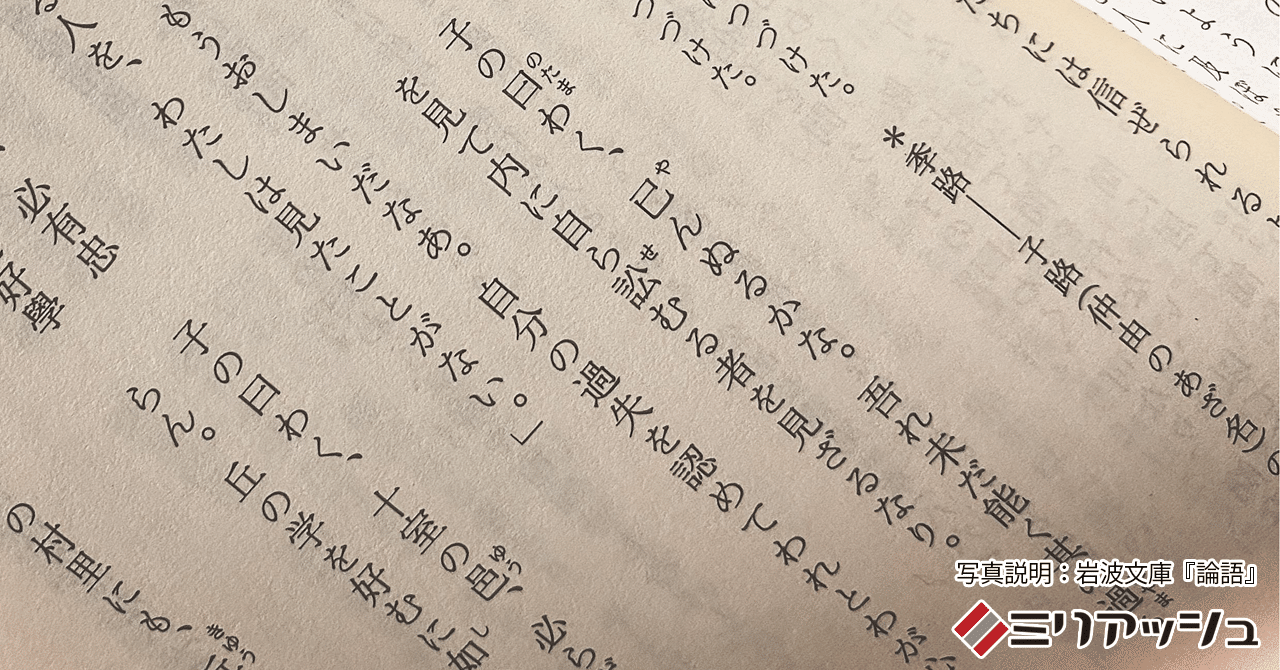 人に及ぼ
たちには信ぜられる
＊季路――子路(仲由のあざ名)の
つづけた。
つづけた。
子の曰わく、已んぬるかな。吾れ未だ能く其の過
を見て内に自ら訟むる者を見ざるなり。
もうおしまいだなあ。自分の過失を認めてわれとわが
人を、わたしは見たことがない。」
必有忠
好學
子の曰わく、十室の邑、必らず
らん。丘の学を好むに如
の村里にも、
写真説明：岩波文庫『論語』
ミリアッシュ